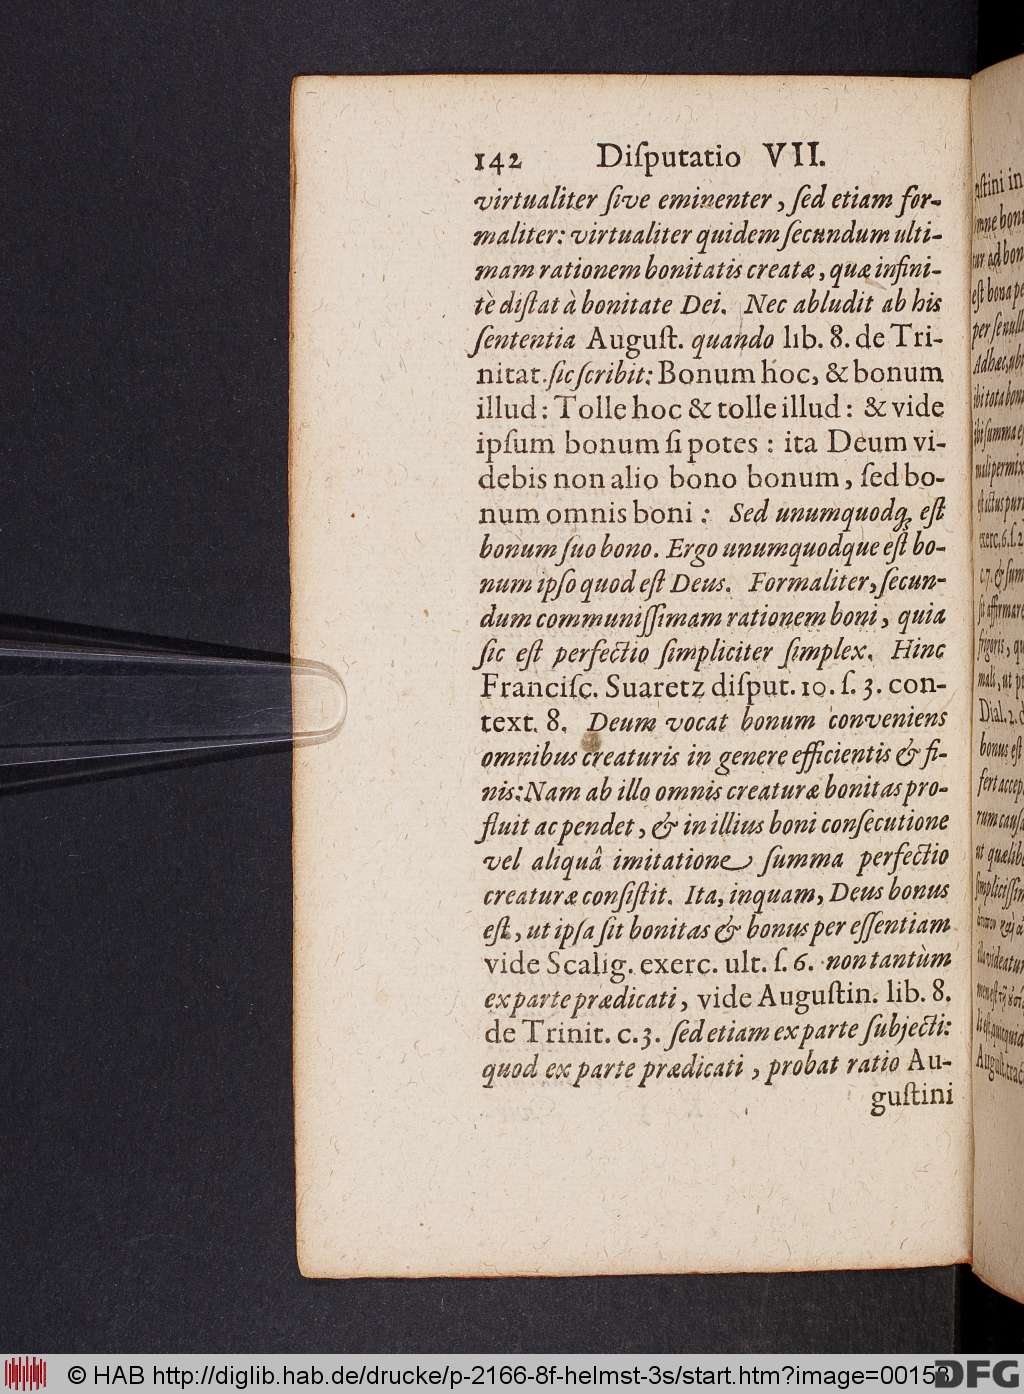 142 Diſputatio VII.
virtualiter ſive eminenter, ſed etiam for-
maliter: virtualiter quidem ſecundum ulti-
mam rationem bonitatis creatæ, quæ infini-
tè diſtat à bonitate Dei. Nec abludit ab his
ſententia Auguſt. quando lib. 8. de Tri-
nitat. ſic ſcribit: Bonum hoc, & bonum
illud: Tolle hoc & tolle illud: & vide
ipſum bonum ſi potes: ita Deum vi-
debis non alio bono bonum, ſed bo-
num omnis boni: Sed unumquodq; eſt
bonum ſuo bono. Ergo unumquodque eſt bo-
num ipſo quod eſt Deus. Formaliter, ſecun-
dum communiſſimam rationem boni, quia
ſic eſt perfectio ſimpliciter ſimplex. Hinc
Franciſc. Suaretz diſput. 10. ſ. 3. con-
text. 8. Deum vocat bonum conveniens
omnibus creaturis in genere efficientis & fi-
nis: Nam ab illo omnis creaturæ bonitas pro-
fluit ac pendet, & in illius boni conſecutione
vel aliquâ imitatione ſumma perfectio
creaturæ conſiſtit. Ita, inquam, Deus bonus
eſt, ut ipſa ſit bonitas & bonus per eſſentiam
vide Scalig. exerc. ult. ſ. 6. non tantùm
ex parte prædicati, vide Auguſtin. lib. 8.
de Trinit. c. 3. ſed etiam ex parte ſubjecti:
quod ex parte prædicati, probat ratio Au-
guſtini
© HAB http://diglib.hab.de/drucke/p-2166-8f-helmst-3s/start.htm?image=00158
DFG